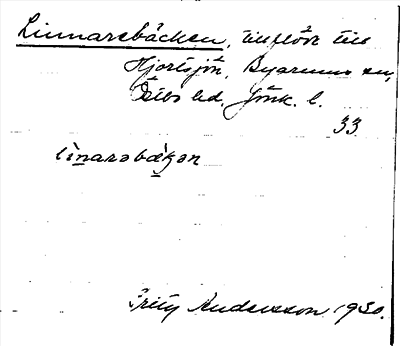 Linnarebäcken, tillflöde till
Hjortsjön, Byarums sn,
Östbo hd. Jönk. l.
33
lìnarəbæ̀kən
Fritz Andersson 1930.